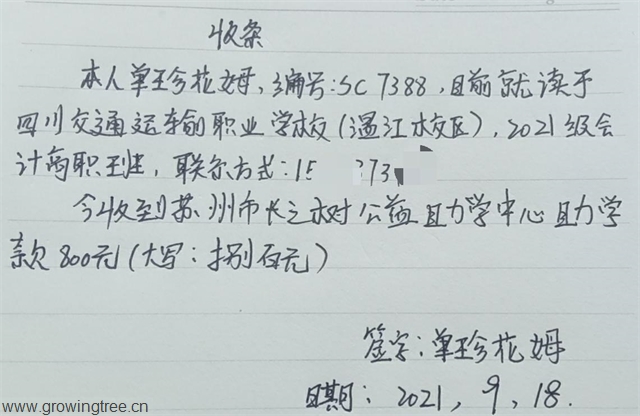 收条
本人单珍花姆,编号:SC 7388,目前就读于
四川交通运输职业学校(温江校区),2021级会
计高职班,联系方式:15 373
今收到苏州市长三树公益助学中心助学
款800元(大写:捌佰元)
签字:单珍花姆
日期:2021,9,18.
www.growingtree.cn